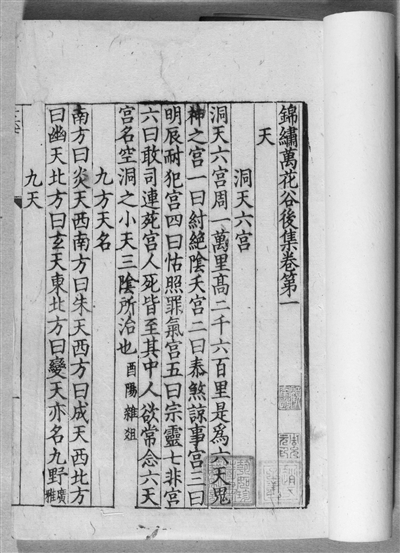 錦繡萬花谷後集卷第一
天
洞天六宫
洞天六宫周一萬里髙二千六百里是爲六天鬼
神之宫一曰紂絶陰天宫二曰泰煞諒事宫三曰
明辰耐犯宫四曰怙照罪氣宫五曰宗靈七非宫
六曰敢司連死宫人死皆至其中人欲常念六天
宫名空洞之小天三陰所治也酉陽雜俎
九方天名
南方曰炎天西南方曰朱天西方曰成天西北方
曰幽天北方曰玄天東北方曰變天亦名九野廣雅
九天